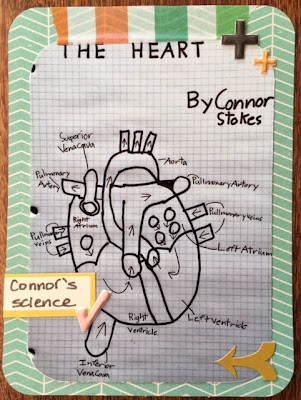 THE HEART
By Connor
Stokes
Superior
Vena Cava
Pulmonary
Artery
Aorta
Pullmonary Artery
Right
Atrium
Pulmonary Veins
Pulmonary
Veins
Left Atrium
Connor's
science
Left Ventricle
Right
Ventricle
Inferior
Vena Cava